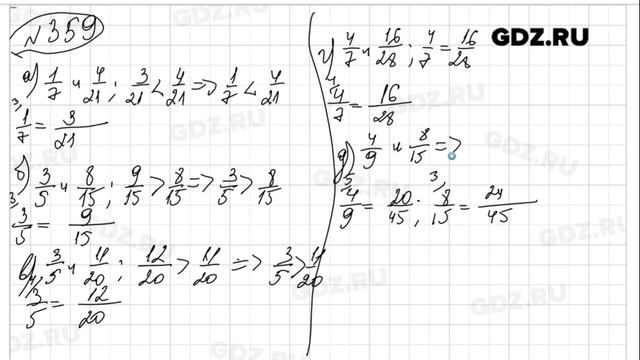 №359
а) 1/7 и 4/21; 3/21 < 4/21 => 1/7 < 4/21
3, 1/7 = 3/21
б) 3/5 и 8/15; 9/15 > 8/15 => 3/5 > 8/15
3, 3/5 = 9/15
в) 3/5 и 11/20; 12/20 > 11/20 => 3/5 > 11/20
4, 3/5 = 12/20
г) 4/7 и 16/28; 4/7 = 16/28
4, 4/7 = 16/28
д) 4/9 и 8/15 =>
5, 4/9 = 20/45; 3, 8/15 = 24/45
GDZ.RU
GDZ.RU
GDZ.RU
GDZ.RU
GDZ.RU
GDZ.RU
GDZ.RU